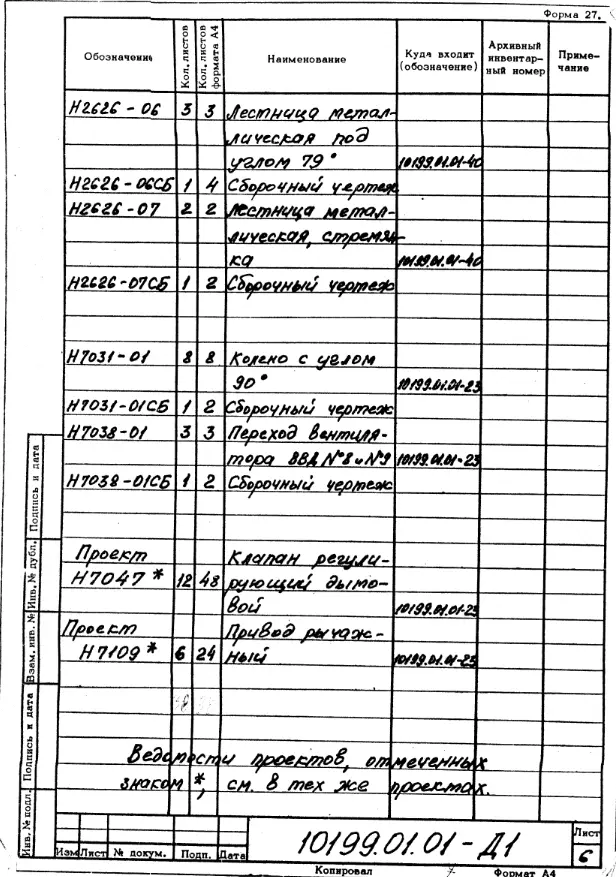 Форма 27.
Обозначение Кол. листов Кол. листов формата А4 Наименование Куда входит (обозначение) Архивный инвентарный номер Примечание
Н2626-06 3 3 Лестница метал-
лическая под
углом 79° 10199.01.01-40
Н2626-06СБ 1 4 Сборочный чертеж
Н2626-07 2 2 Лестница метал-
лическая, стремян-
ка 10199.01.01-40
Н2626-07СБ 1 2 Сборочный чертеж
Н7031-01 8 8 Колено с углом
90° 10199.01.01-23
Н7031-01СБ 1 2 Сборочный чертеж
Н7038-01 3 3 Переход вентиля-
тора ВВД №8 и №9 10199.01.01-23
Н7038-01СБ 1 2 Сборочный чертеж
Проект Клапан регули-
Н7047* 12 48 рующий дымо-
вой 10199.01.01-23
Проект Привод рычаж-
Н7109* 6 24 ный 10199.01.01-23
Ведомости проектов, отмеченных
знаком *, см. в тех же проектах.
Инв. № подл. Подпись и дата Взам. инв. № Инв. № дубл. Подпись и дата
Изм Лист № докум. Подп. Дата
10199.01.01-Д1
Лист
6
Копировал Формат А4